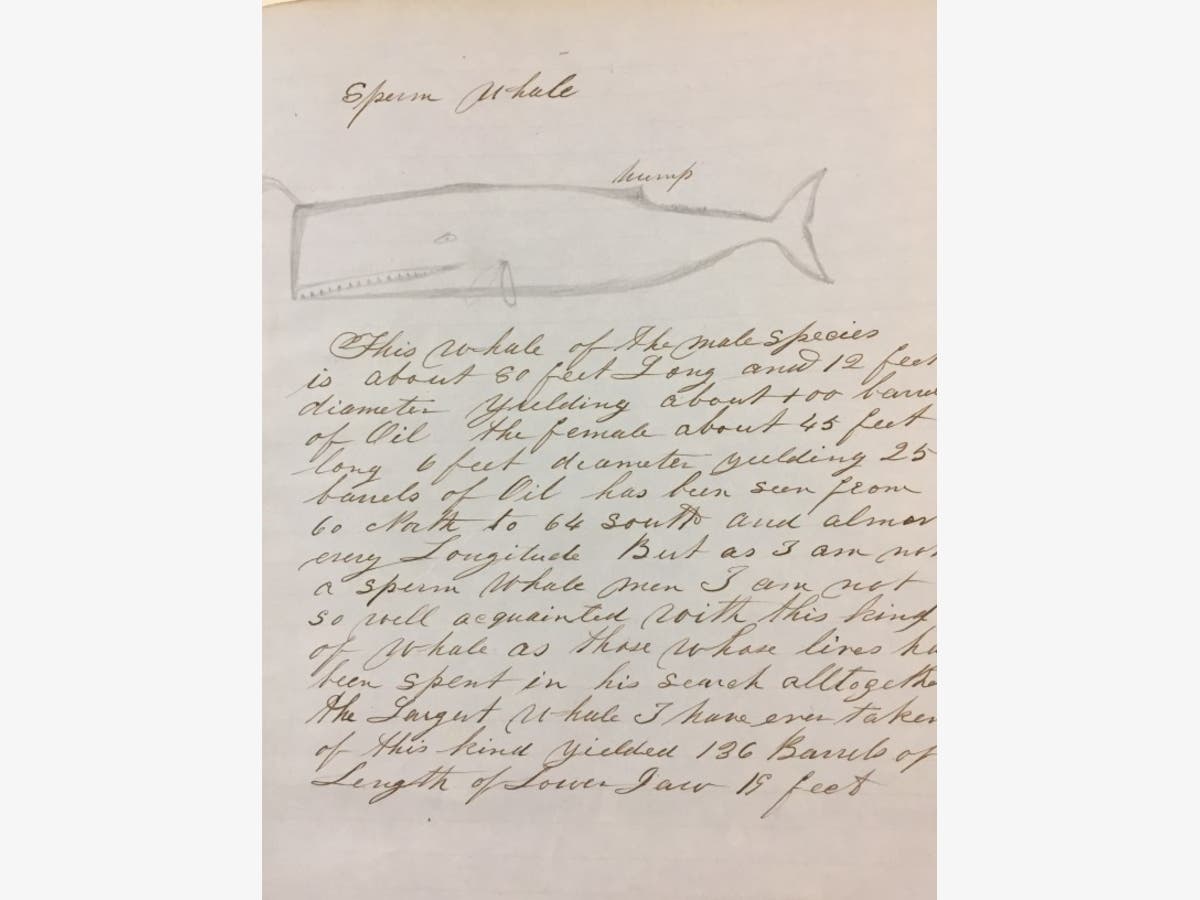 Sperm Whale
hump
This whale of the male species
is about 80 feet Long and 12 feet
diameter Yeilding about 100 barre
of Oil the female about 45 feet
long 6 feet diameter yeilding 25
barrels of Oil has been seen from
60 North to 64 south and almos
every Longitude But as I am not
a sperm Whale man I am not
so well acquainted with this kind
of Whale as those whose lives ha
been spent in his search alltogethe
the Largest Whale I have ever taken
of this kind Yielded 136 Barrels of
Length of Lower Jaw 19 feet